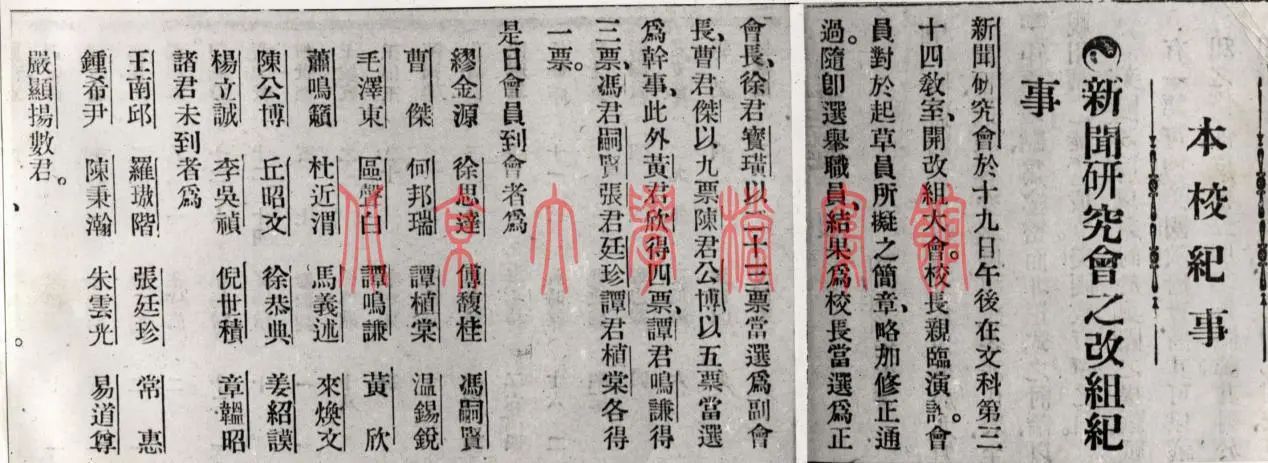 本校紀事
新聞研究會之改組紀
事
新聞研究會於十九日午後在文科第三
十四教室、開改組大會。校長親臨演說。會
員對於起草員所擬之簡章、略加修正通
過。隨卽選舉職員、結果爲校長當選爲正
會長、徐君寳璜以二十三票當選爲副會
長、曹君傑以九票陳君公博以五票當選
爲幹事、此外黃君欣得四票、譚君鳴謙得
三票、馮君嗣賢張君廷珍譚君植棠各得
一票。
是日會員到會者爲
繆金源 徐思達 傅馥桂 馮嗣賢
曹傑 何邦瑞 譚植棠 温錫銳
毛澤東 區聲白 譚鳴謙 黃欣
蕭鳴籟 杜近渭 馬義述 來煥文
陳公博 丘昭文 徐恭典 姜紹謨
楊立誠 李吳禎 倪世積 章韞昭
諸君未到者爲
王南邱 羅璈階 張廷珍 常惠
鍾希尹 陳秉瀚 朱雲光 易道尊
嚴顯揚數君。
北京大學檔案館